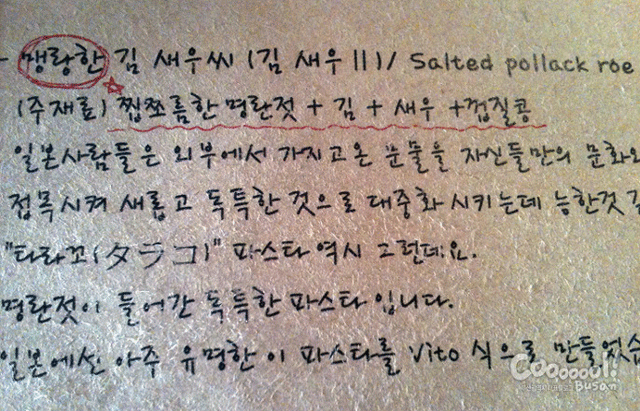 - 맹랑한 김 새우씨 (김 새우||)/ Salted pollack roe
(주재료) 찝쪼름한 명란젓 + 김 + 새우 + 껍질콩
일본사람들은 외부에서 가지고온 문물을 자신들만의 문화와
접목시켜 새롭고 독특한 것으로 대중화 시키는데 능한것
"타라꼬(タラコ)" 파스타 역시 그런데요.
명란젓이 들어간 독특한 파스타 입니다.
일본에선 아주 유명한 이 파스타를 Vito 식으로 만들었습
Cooooool!
Busan